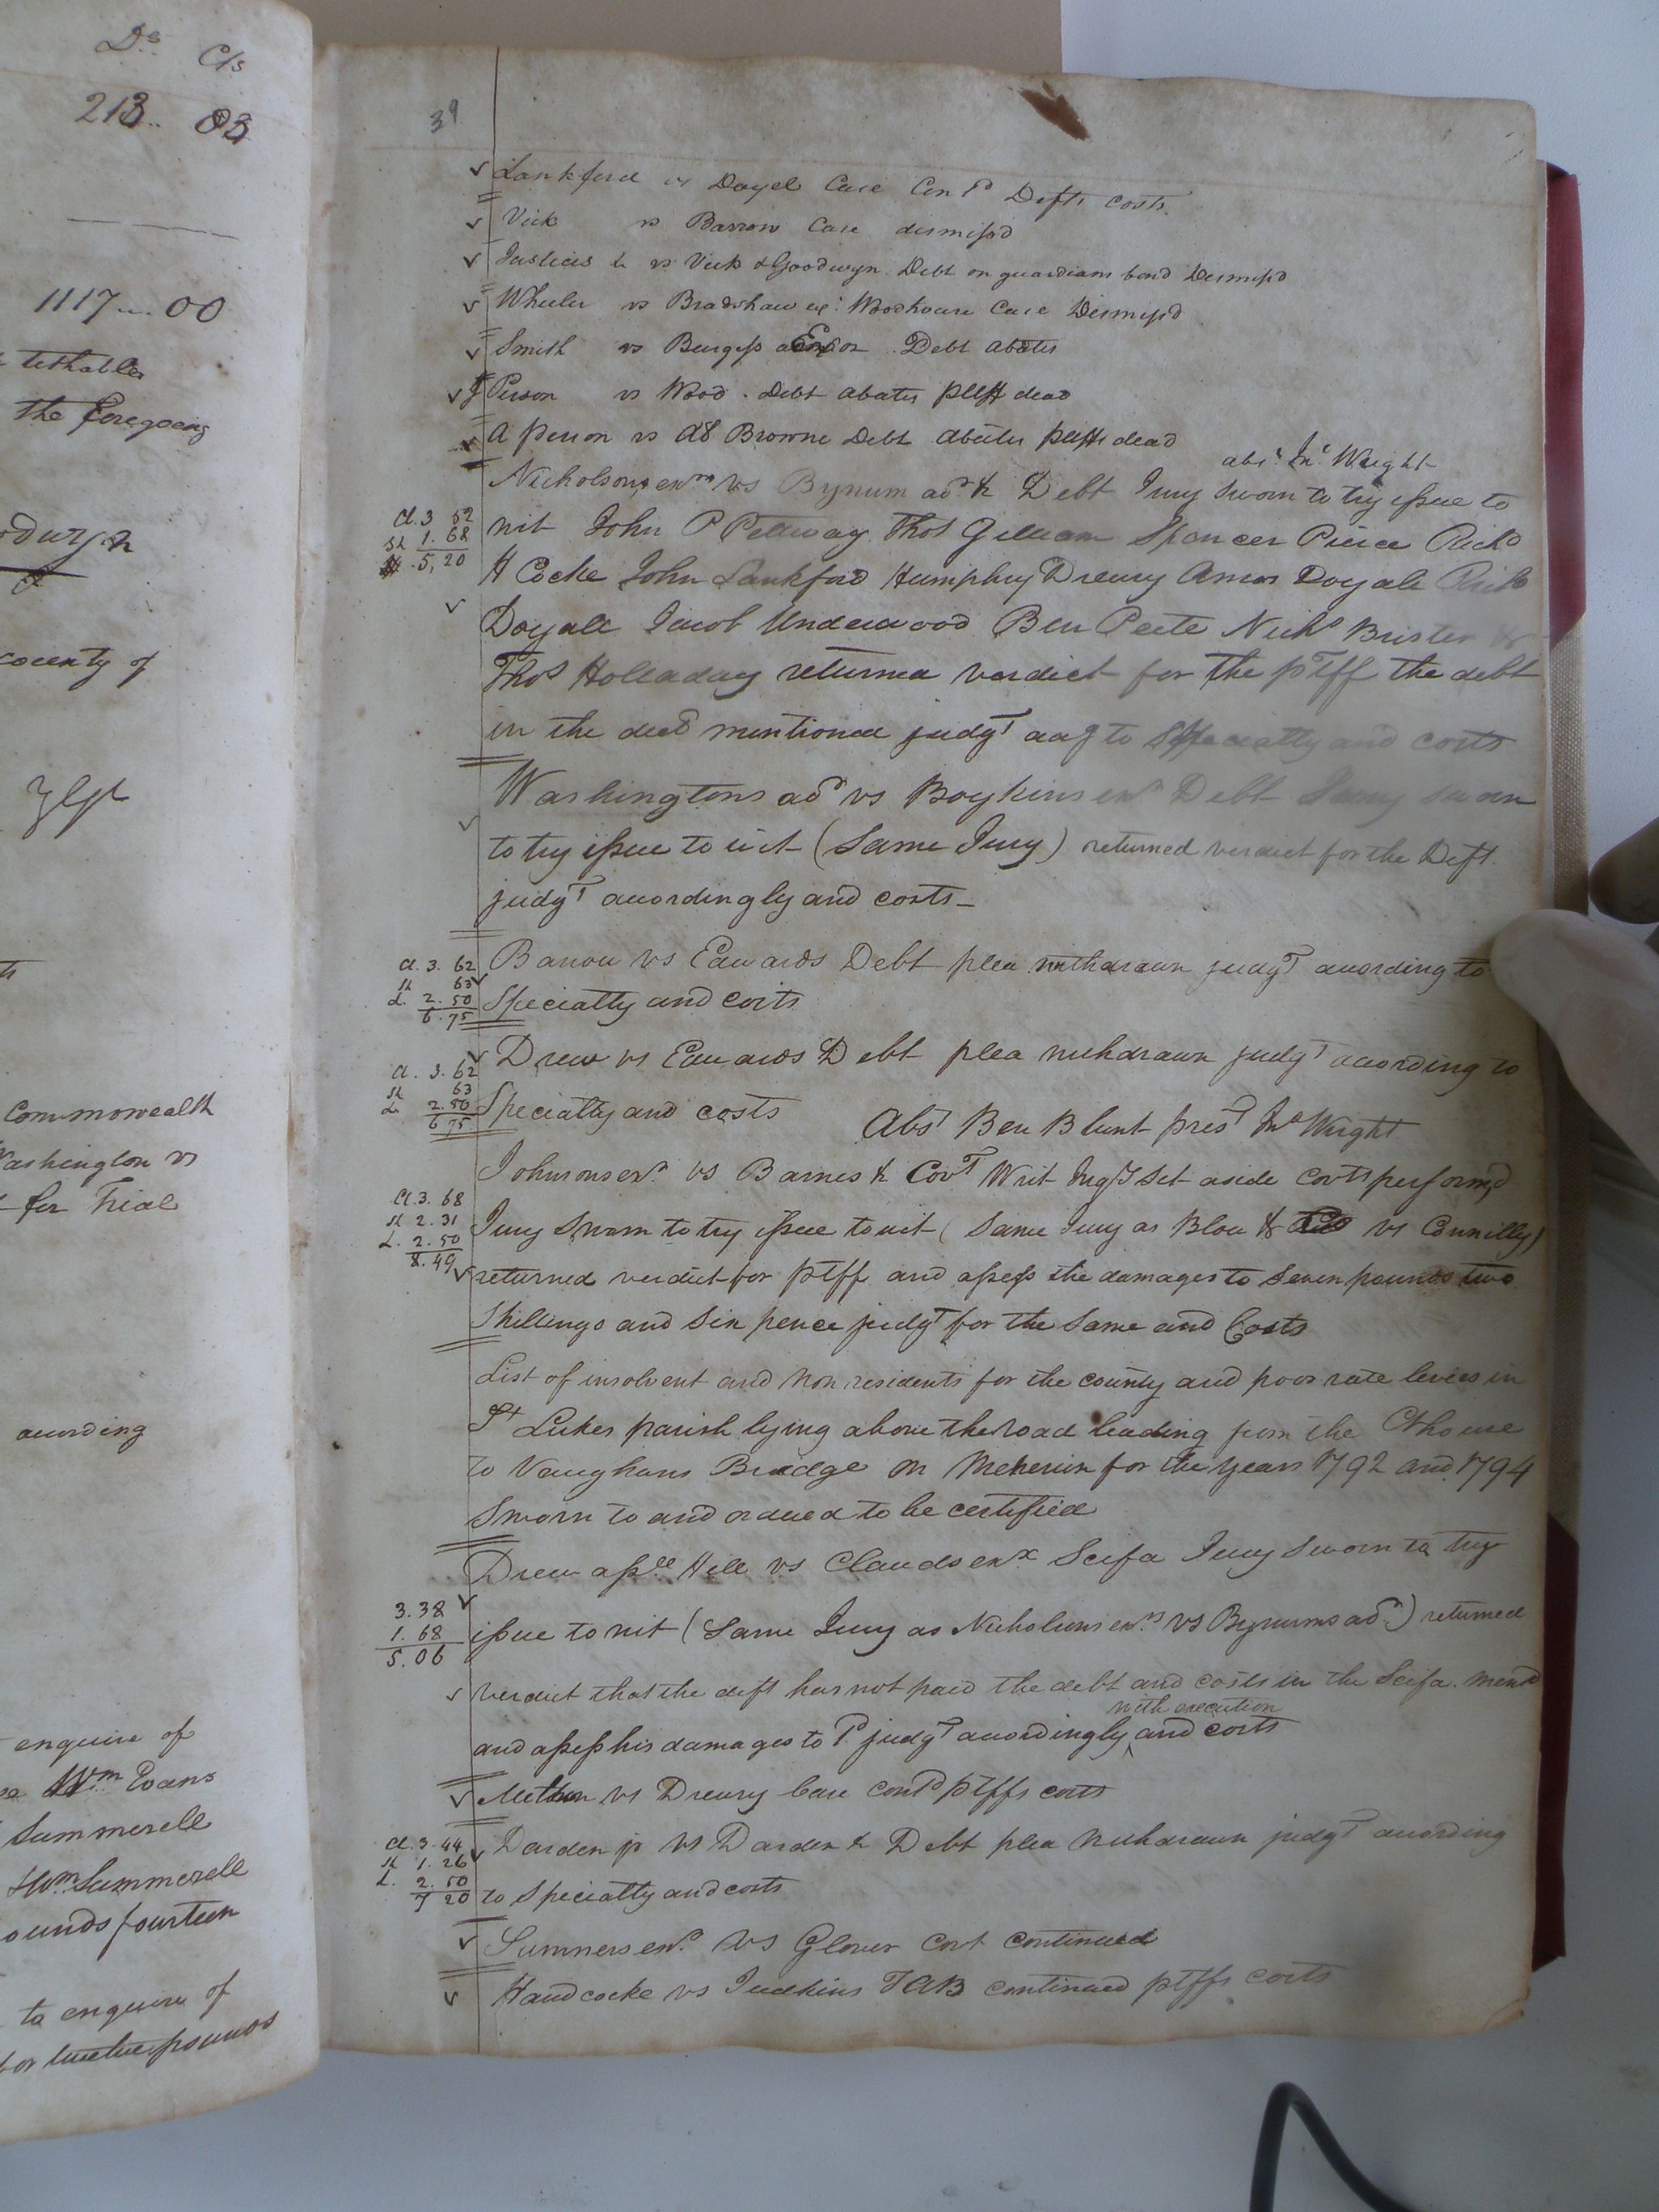 Ds Cts
213.. 03
1117 . . 00
tithables
the foregoing
county of
Commowealth
Washington vs
for Trial
acording
enquire of
Wm Evans
Summerell
Wm Summerell
ounds fourteen
to enquire of
for twelve pounds
39
Lankford vs Doyel Case Contd Defts costs.
Vick vs Barrow Case dismissd
Justices &c vs Vick & Goodwyn. Debt on guardians bond Dismissd
Wheeler vs Bradshaw Woodhouse Case Dismissd
Smith vs Burgess Debt abates
J Person vs Wood. Debt abates pltff dead
A person vs Browne Debt abates pltffs dead
abst Jno Wright
Nicholsons exrs vs Bynum adr &c Debt Jury Sworn to try issue to
Cl. 3 52
Sh 1. 68
5,20
wit John P Pettway Thos Gilliam Spencer Pierce Richd
H Cocke John Lankford Humphry Drewry Amos Doyale Richd
Doyale Jacob Underwood Ben Peete Nichs Brister &
Thos Holladay returned verdict for the pTff the debt
in the decn mentioned judgT aag to Specialty and costs
Washingtons adr vs Boykins exr Debt Jury sworn
to try issue to wit (Same Jury) returned verdict for the Deft.
judgT acordingly and costs_
Cl. 3. 62
Sh 63
L. 2. 50
6. 75
Barrow vs Edwards Debt plea withdrawn judgT acording to
Specialty and costs
Cl. 3. 62
Sh 63
L. 2. 50
6 75
Drew vs Edwards Debt plea withdrawn judgT acording to
Specialty and costs Abst Ben Blunt prest Jno Wright
Johnsons exr. vs Barnes &c CovT Writ Inqy Set aside Covts performd
Cl. 3. 68
Sh 2. 31
L. 2. 50
8. 49
Jury Sworn to try issue to wit (Same Jury as Blow & vs Connilly)
returned verdict for pTff. and assess the damages to Seven pounds two
Shillings and Six pence judgT for the Same and Costs
List of insolvent and non residents for the county and poor rate levies in
St Lukes parish lying above the road leading from the Cthouse
to Vaughans Bridge on Meherin for the years 1792 and 1794
Sworn to and ordered to be certified
Drew asse Hill vs Clauds exx Scifa Jury Sworn to try
3. 38
1. 68
5. 06
issue to wit (Same Jury as Nicholsons exrs vs Bynums adr) returned
verdict that the deft has not paid the debt and costs in the Scifa. mend
with execution
and assess his damages to judgT acordingly and costs
vs Drewry Case Contd pTffs costs
Cl. 3. 44
Sh 1. 26
L. 2. 50
7 20
Darden jr vs Darden &c Debt plea withdrawn judgT acording
to Specialty and costs
Sumners exr. vs Glover Covt Continued
Handcocke vs Judkins TAB continued pTffs costs